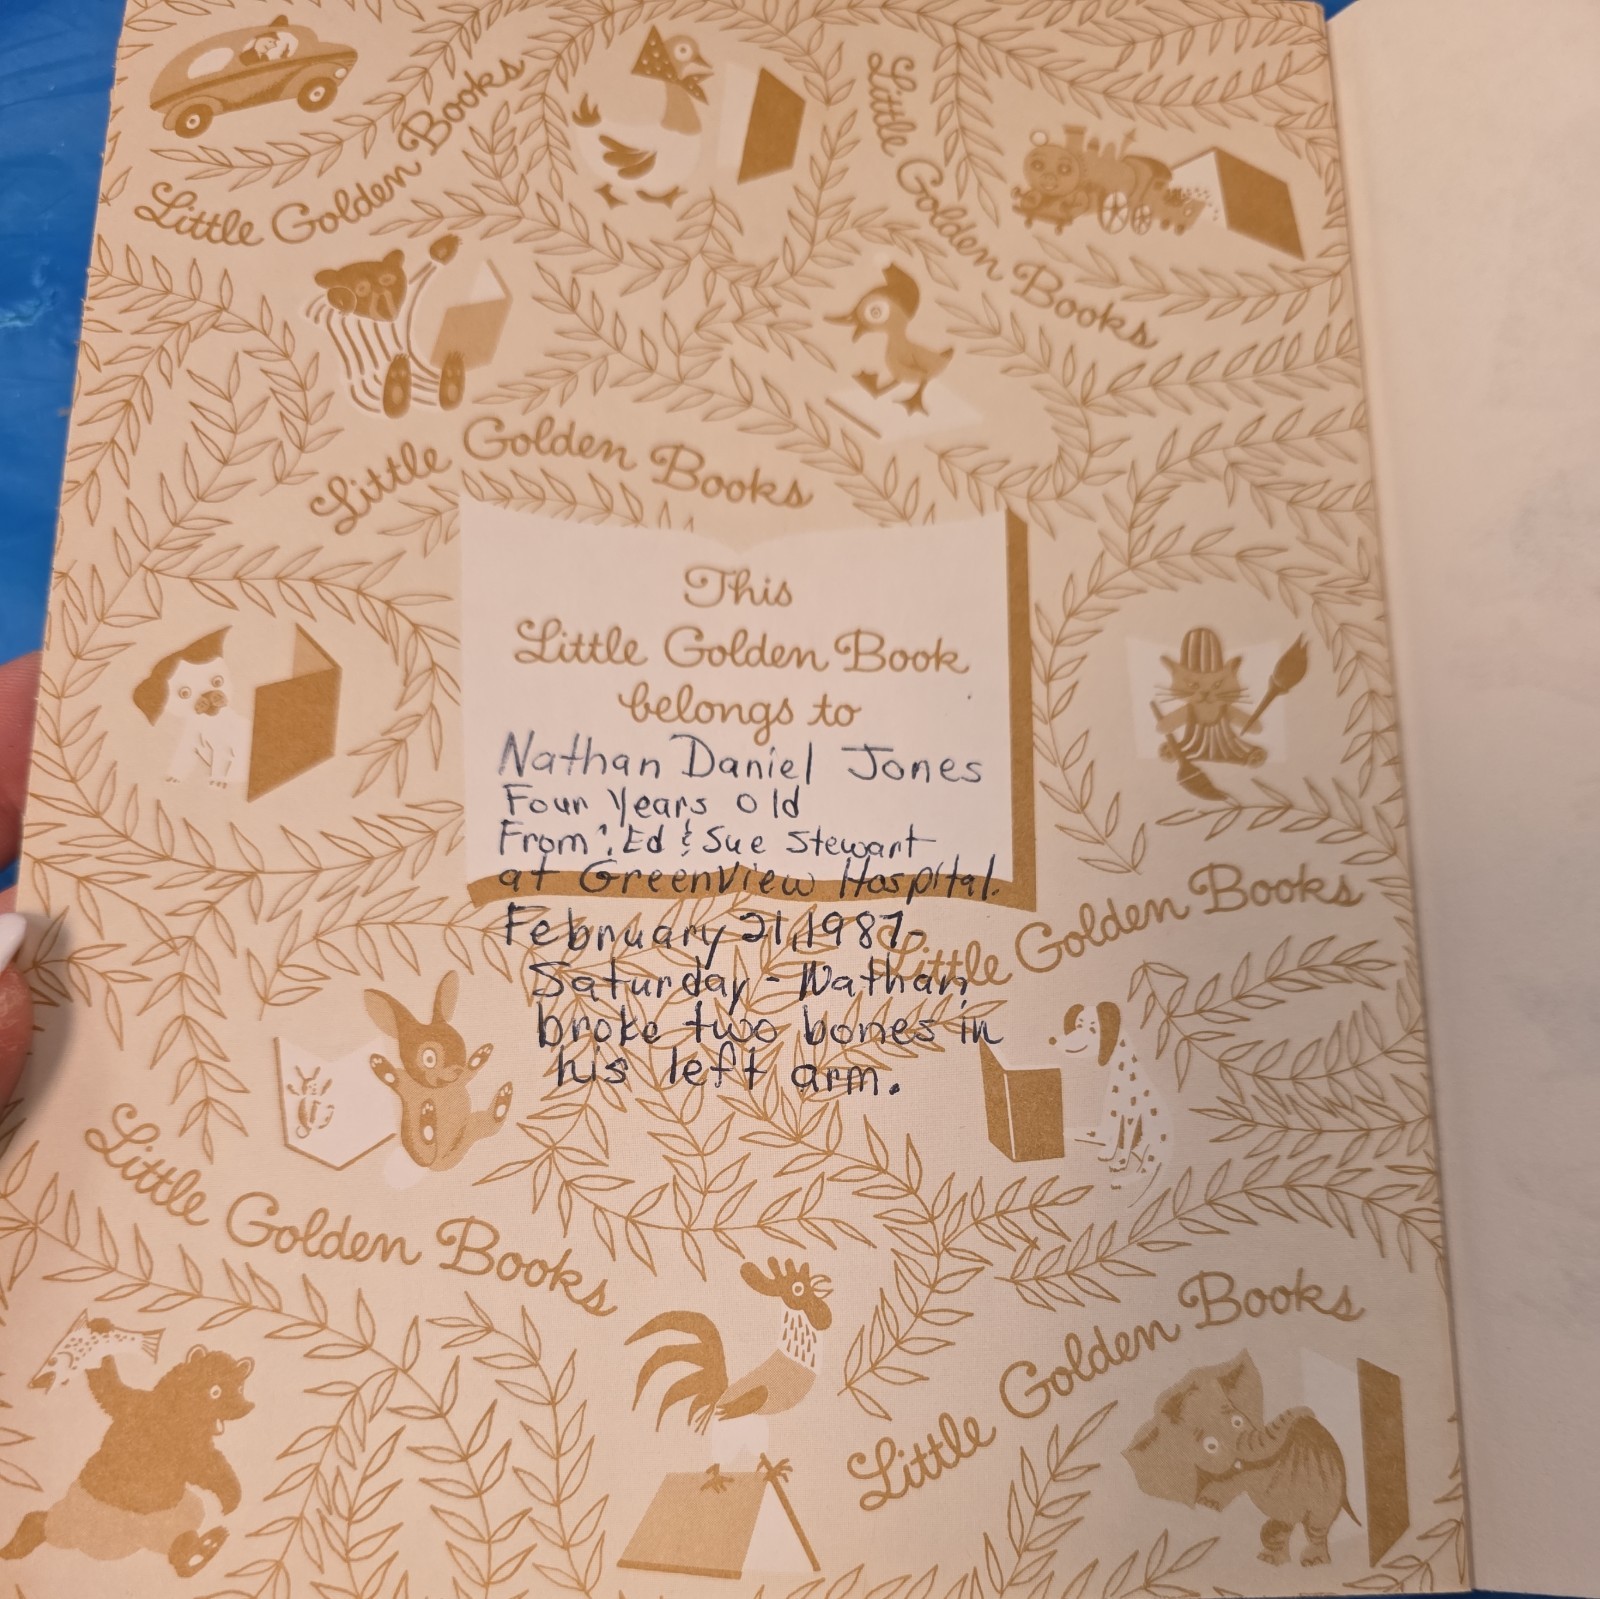 Little Golden Books
Little Golden Books
Little Golden Books
This
Little Golden Book
belongs to
Nathan Daniel Jones
Four Years Old
From: Ed & Sue Stewart
at Greenview Hospital.
February 21, 1987-
Saturday - Nathan
broke two bones in
his left arm.
Little Golden Books
Little Golden Books
Little Golden Books